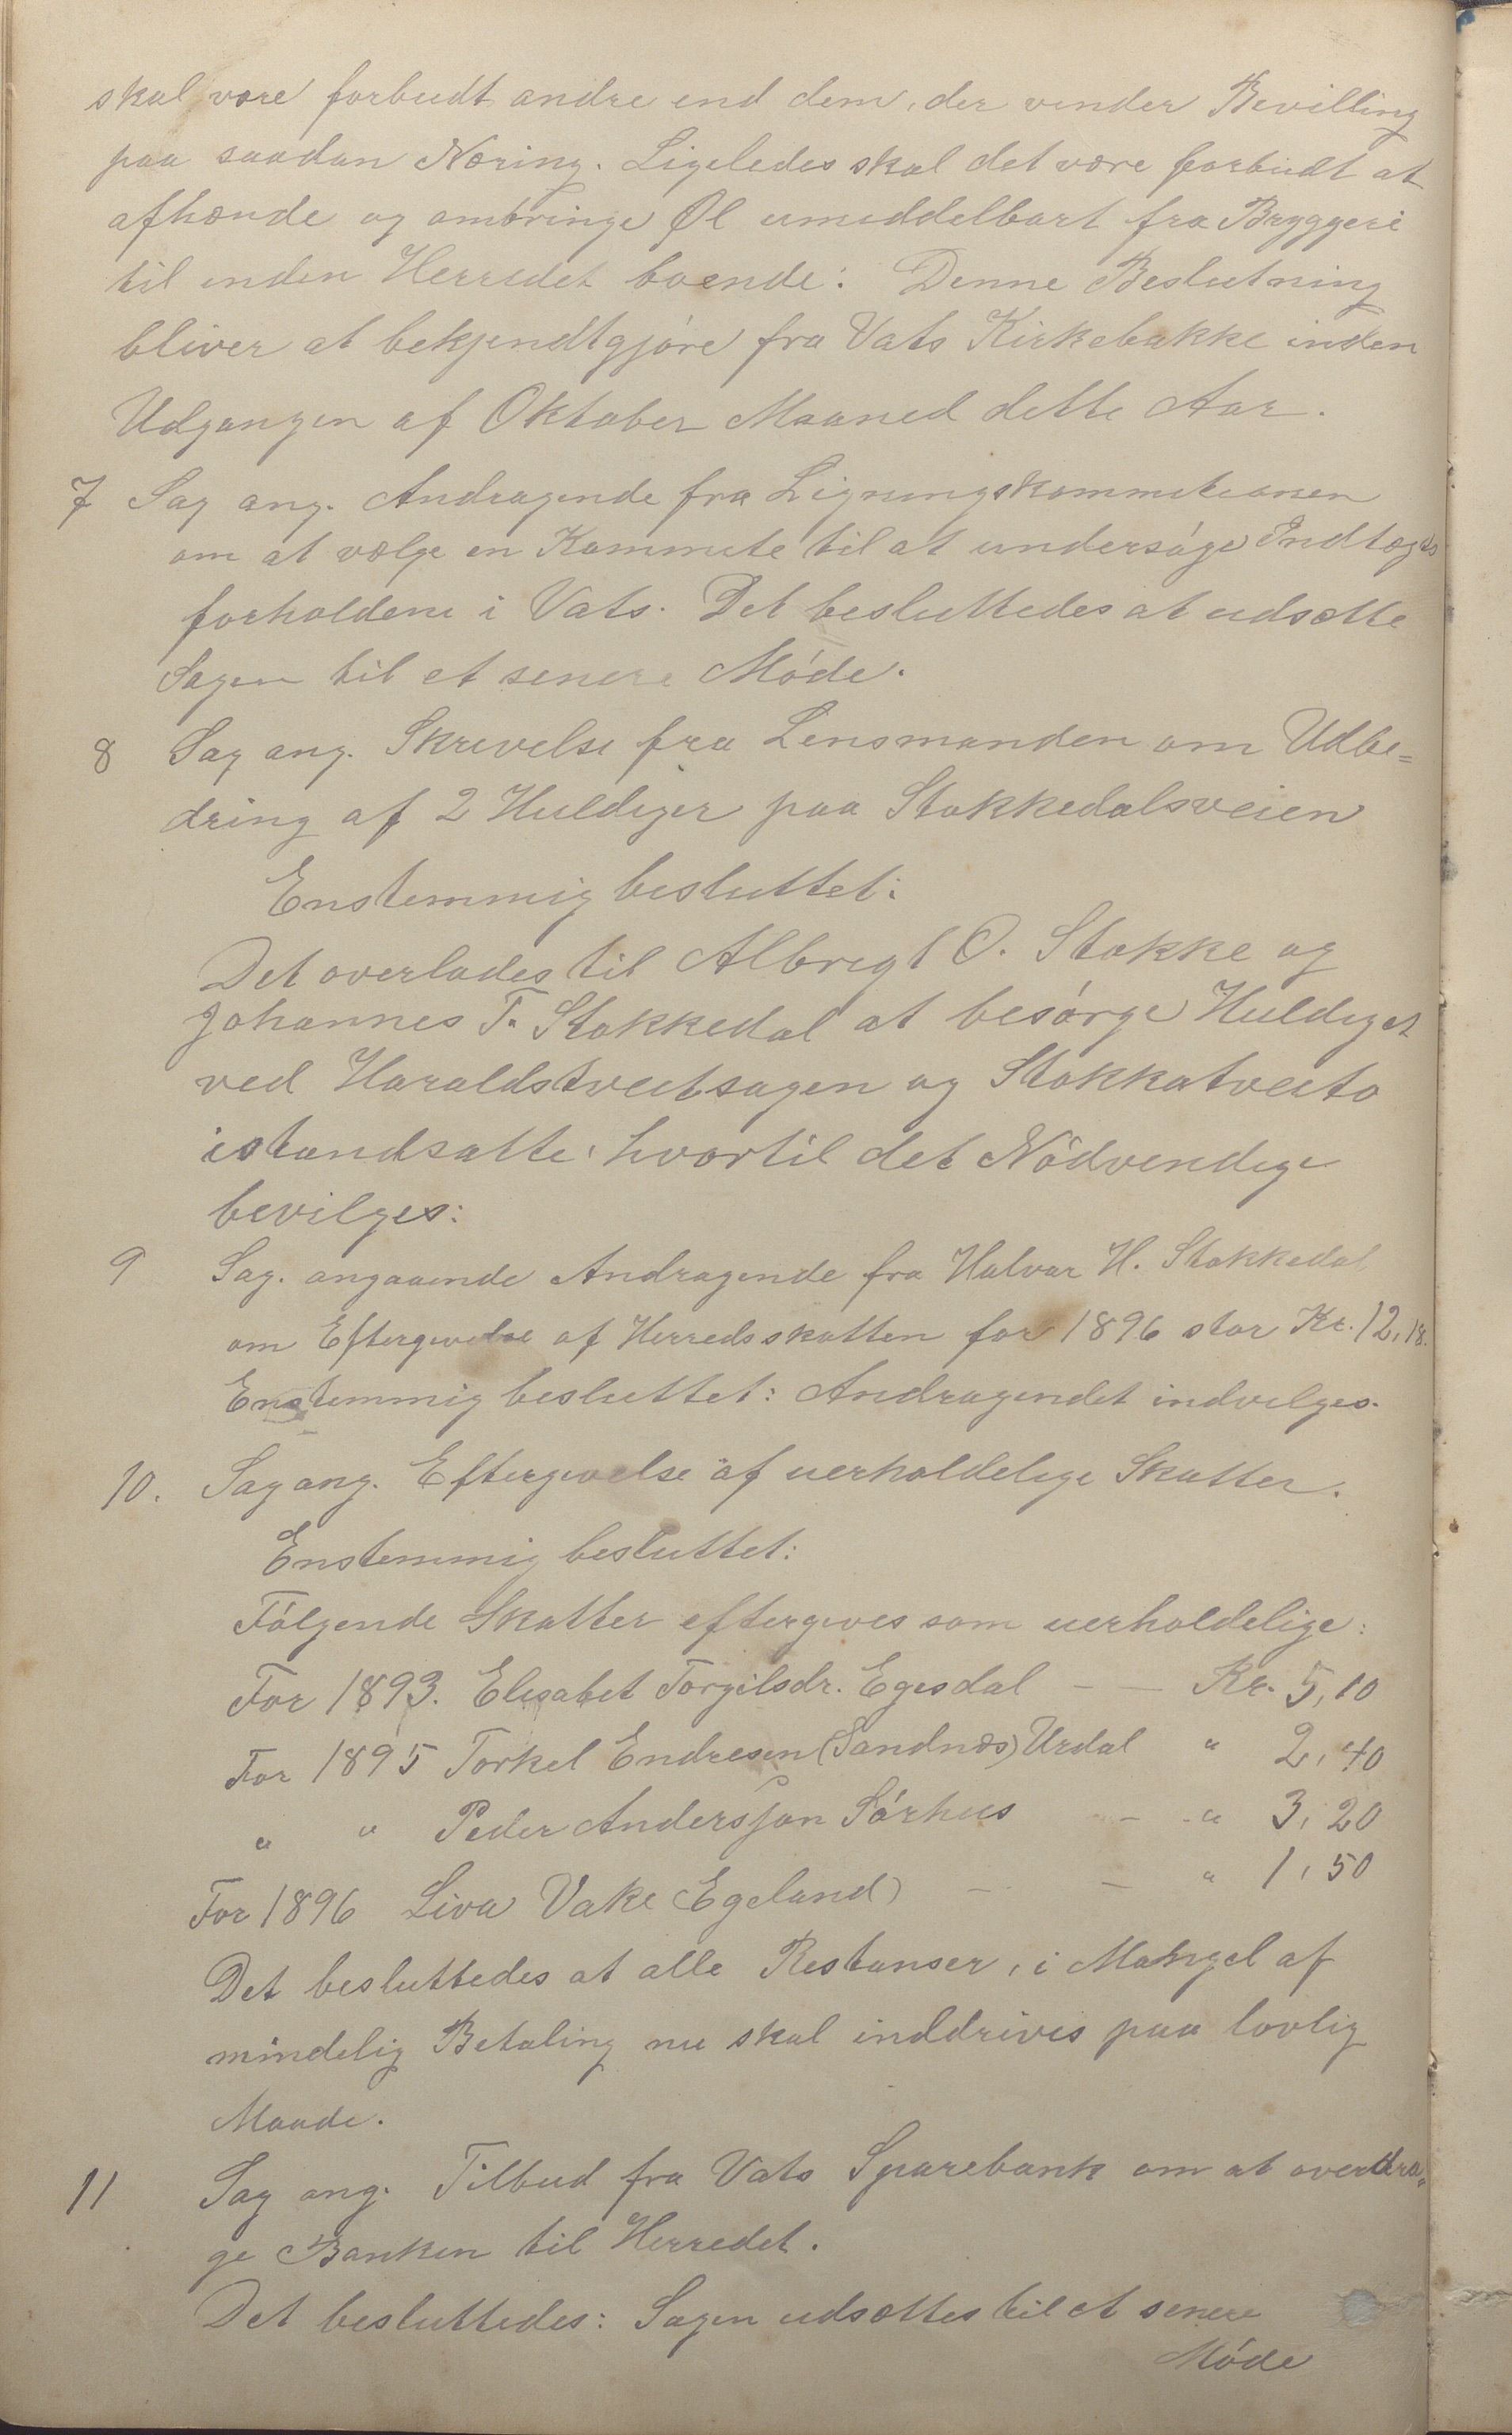 skal være forbudt andre end dem, der vinder Bevilling
paa saadan Næring. Ligeledes skal det være forbudt at
afhænde og ombringe Øl umiddelbart fra Bryggeri
til inden Herredet boende: Denne Beslutning
bliver at bekjendtgjøre fra Vats Kirkebakke inden
Udgangen af Oktober Maaned dette Aar.
7 Sag ang. Andragende fra Ligningskommisionen
om at vælge en Kommite til at undersøge Indtægts
forholdene i Vats. Det besluttedes at udsætte
Sagen til et senere Møde.
8 Sag ang. Skrivelse fra Lensmanden om Udbe=
dring af 2 Huldiger paa Stokkedalsveien
Enstemmig besluttet:
Det overlades til Albrigt O. Stokke og
Johannes T. Stokkedal at besørge Huldiget
ved Haraldstveitsagen og Stokkatveito
istandsatte, hvortil det Nødvendige
bevilges:
9 Sag. angaaende Andragende fra Halvor H. Stokkedal
om Eftergivelse af Herredsskatten for 1896 stor Kr. 12,18.
Enstemmig besluttet: Andragendet indvilges.
10. Sag ang. Eftergivelse af uerholdelige Skatter.
Enstemmig besluttet:
Følgende Skatter eftergives som uerholdelige:
For 1893. Elisabet Torgilsdr. Egesdal – – Kr. 5,10
For 1895 Torkel Endresen (Sandnæs) Urdal " 2,40
" " Peder Andersson Sørhus – " 3,20
For 1896 Liva Vake Egeland – – " 1,50
Det besluttedes at alle Restanser, i Mangel af
mindelig Betaling nu skal inddrives paa lovlig
Maade.
11 Sag ang. Tilbud fra Vats Sparebank om at overdra=
ge Banken til Herredet.
Det besluttedes: Sagen udsættes til et senere
Møde